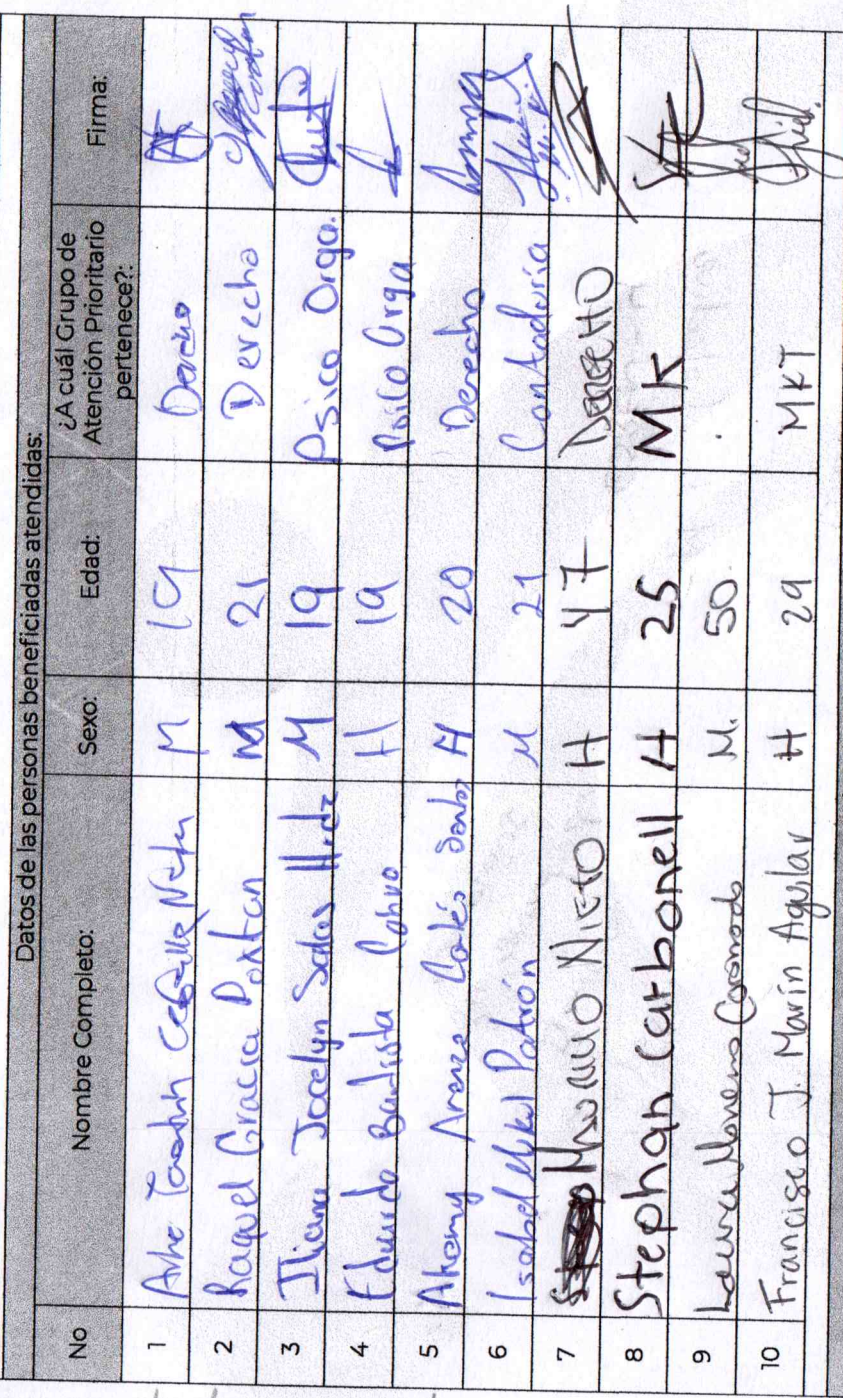 Datos de las personas beneficiadas atendidas:
No Nombre Completo: Sexo: Edad: ¿A cuál Grupo de Atención Prioritario pertenece?: Firma:
1 M 19
2 Raquel Gracia M 21 Derecho
3 Iliana Jocelyn Salas Hrdz M 19 Psico Orga.
4 Eduardo Bautista H 19 Psico Orga
5 Cortés H 20 Derecho
6 Isabel Mukul Patrón M 21 Contaduría
7 Mauricio Nieto H 47 Derecho
8 Stephan Carbonell H 25 MK
9 Laura Moreno M. 50 .
10 Francisco J. Marín Aguilar H 29 MKT